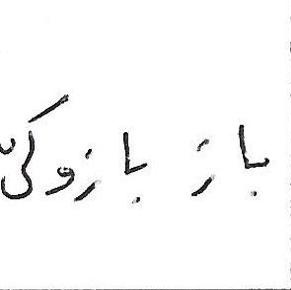 باز بازوکی